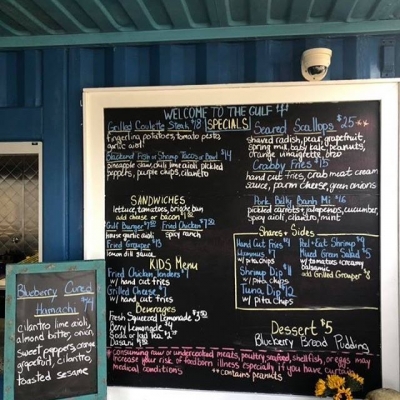 WELCOME TO THE GULF
SPECIALS
Grilled Coulette Steak $18
fingerling potatoes, tomato pesto,
garlic aioli
Blackened Fish or Shrimp Tacos or Bowl $14
pineapple slaw, chili lime aioli, pickled
peppers, purple chips, cilantro
Seared Scallops $25 **
shaved radish, pear, grapefruit,
spring mix, baby kale, peanuts,
orange vinaigrette, orzo
Crabby Fries $15
hand cut fries, crab meat cream
sauce, parm cheese, green onions
Pork Belly Banh Mi $16
pickled carrots + jalapenos, cucumber,
spicy aioli, cilantro, mint
SANDWICHES
lettuce, tomatoes, bun
add cheese or bacon
Gulf Burger
house garlic aioli
Fried Chicken
spicy ranch
Fried Grouper
lemon dill sauce
KIDS Menu
Fried Chicken Tenders
w/ hand cut fries
Grilled Cheese
w/ hand cut fries
Beverages
Fresh Squeezed Lemonade
Berry Lemonade
Soda or Iced Tea
Dasani
Shares + Sides
Hand Cut Fries $4
Hummus
w/ pita chips
Shrimp Dip
w/ pita chips
Tuna Dip
w/ pita chips
Peel + Eat Shrimp
Mixed Green Salad $5
w/ tomatoes + creamy
balsamic
add Grilled Grouper
Dessert $5
Blueberry Bread Pudding
* Consuming raw or undercooked meats, poultry, seafood, shellfish, or eggs may
increase your risk of foodborn illness especially if you have certain
medical conditions
** contains peanuts
Blueberry Cured
Hamachi $14
cilantro lime aioli,
almond bitter, onion,
sweet peppers, orange
grapefruit, cilantro,
toasted sesame